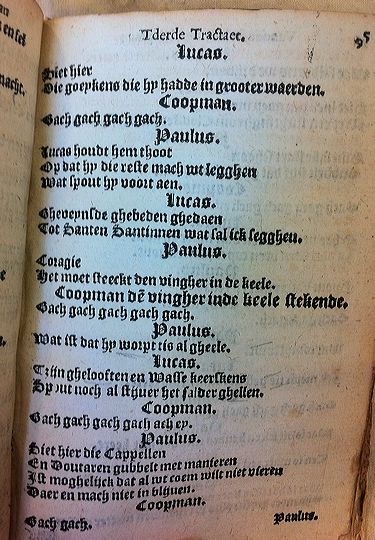 Tderde Tractaet. 95
Lucas.
Siet hier
Die goeykens die hy hadde in grooter waerden.
Coopman.
Gach gach gach gach.
Paulus.
Lucas houdt hem thoot
Op dat hy die reste mach wt legghen
Wat spout hy voort aen.
Lucas.
Gheveynsde ghebeden ghedaen
Tot Santen Santinnen wat sal ick segghen.
Paulus.
Coragie
Het moet steeckt den vingher in de keele.
Coopman dẽ vingher inde keele stekende.
Gach gach gach gach gach.
Paulus.
Wat ist dat hy worpt tis al gheele.
Lucas.
Tzijn ghelooften en Wasse keerskens
Hy rut noch al stijver het salder ghellen.
Coopman.
Gach gach gach gach ach ey.
Paulus.
Siet hier die Cappellen
En Voutaren gubbelt met manieren
Ist moghelijck dat al wt coem wilt niet vieren
Daer en mach niet in blijven.
Coopman.
Gach gach. Paulus.